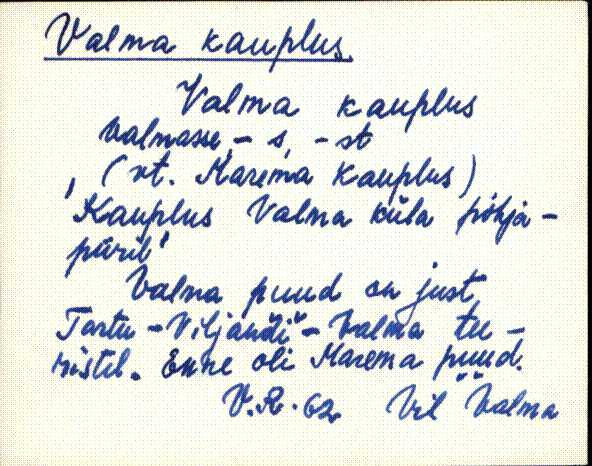 Valma kauplus.
Valma kauplus
Valmasse, - s, - st
(vt. Marema kauplus)
'Kauplus Valma küla põhja-
püril'
Valma puud on just
Tartu - Viljandi - Valma tee-
ristil. Enne oli Marema puud.
V.R. 62 Vil Valma